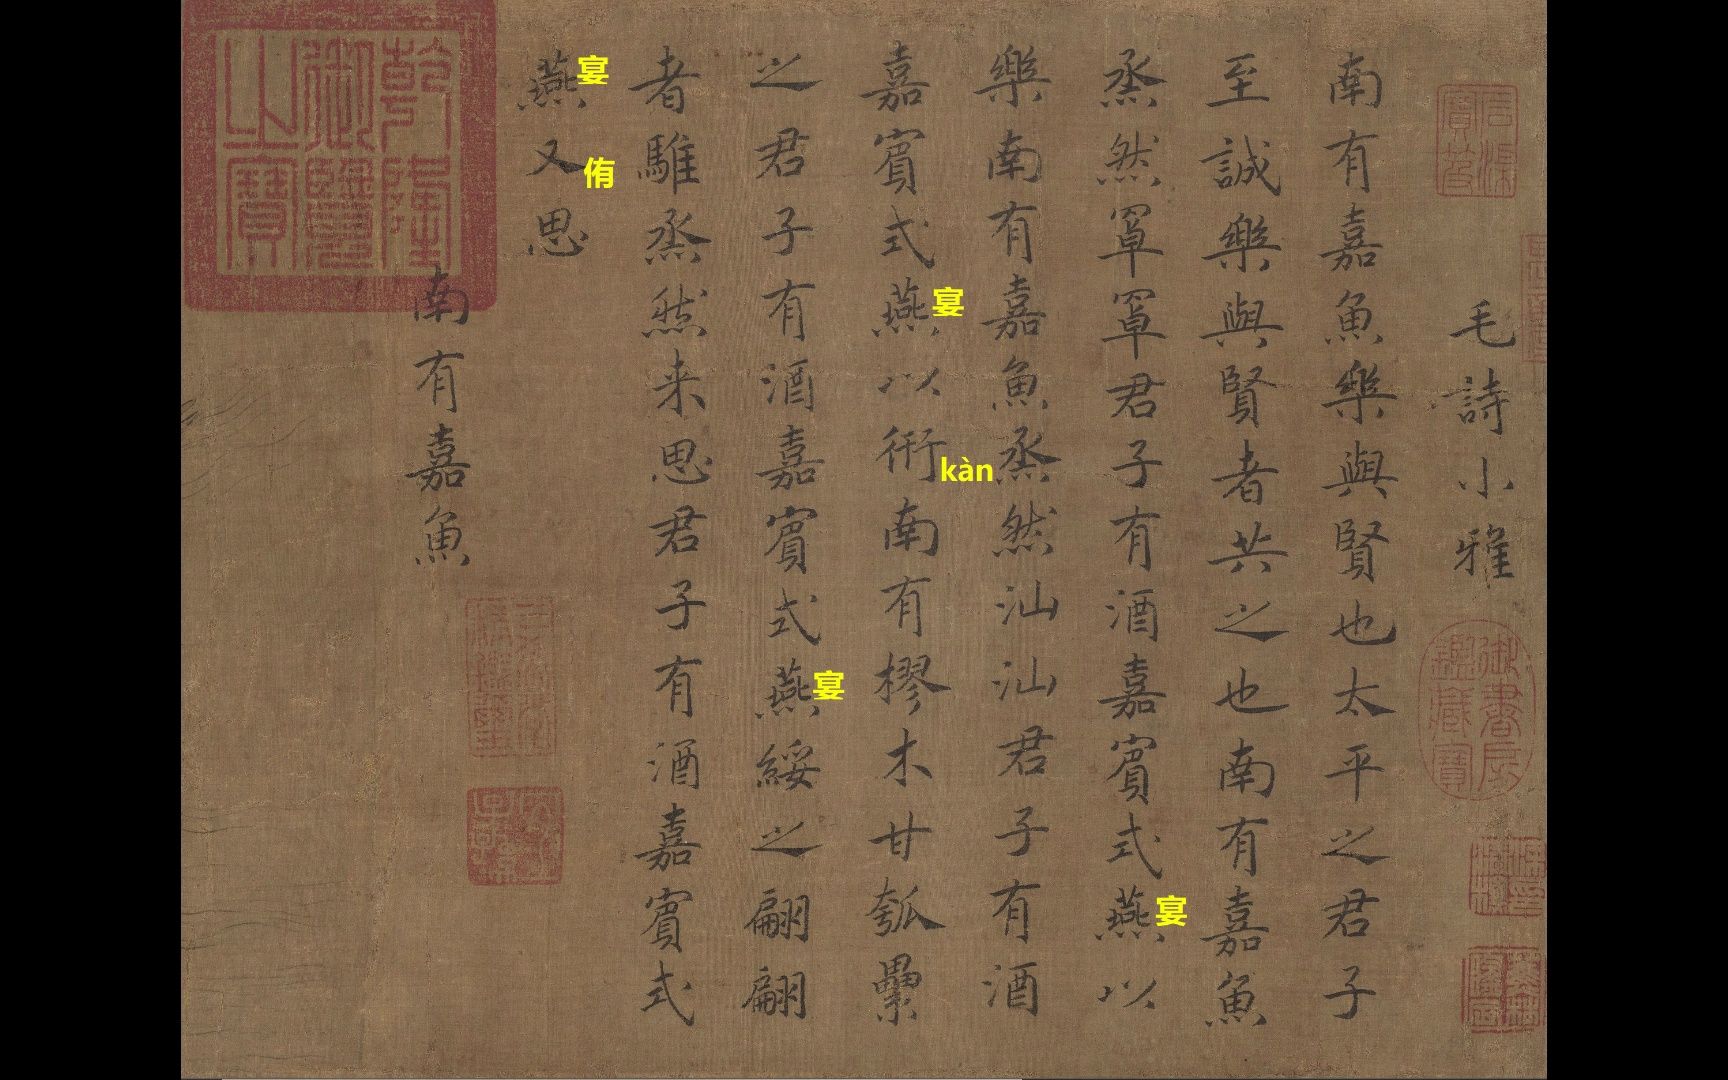 毛詩小雅
南有嘉魚樂與賢也太平之君子
至誠樂與賢者共之也南有嘉魚
烝然罩罩君子有酒嘉賓式燕以
宴
樂南有嘉魚烝然汕汕君子有酒
嘉賓式燕以衎南有樛木甘瓠纍
宴
kàn
之君子有酒嘉賓式燕綏之翩翩
宴
者騅烝然来思君子有酒嘉賓式
燕又思
宴
侑
南有嘉魚
乾隆御覽之寶
御書房鑑藏寶